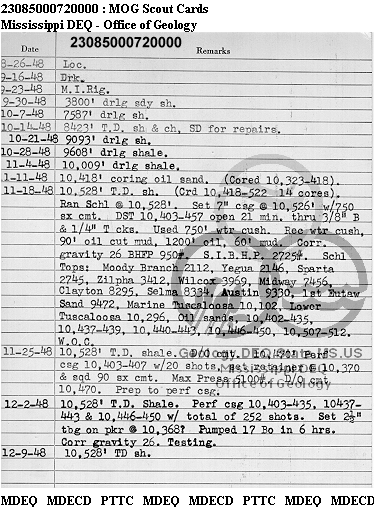 23085000720000 : MOG Scout Cards
Mississippi DEQ - Office of Geology
Date 23085000720000 Remarks
8-26-48 Loc.
9-16-48 Drk.
9-23-48 M.I.Rig.
9-30-48 3800' drlg sdy sh.
10-7-48 7587' drlg sh.
10-14-48 8423' T.D. sh & ch, SD for repairs.
10-21-48 9093' drlg sh.
10-28-48 9608' drlg shale.
11-4-48 10,009' drlg shale.
1-11-48 10,418' coring oil sand. (Cored 10,323-418).
11-18-48 10,528' T.D. sh. (Crd 10,418-522 14 cores).
Ran Schl @ 10,528'. Set 7" csg @ 10,526' w/750
sx cmt. DST 10,403-457 open 21 min. thru 3/8" B
& 1/4" T cks. Used 750' wtr cush. Rec wtr cush,
90' oil cut mud, 1200' oil, 60' mud. Corr.
gravity 26 BHFP 950#. S.I.B.H.P. 2725#. Schl
Tops: Moody Branch 2112, Yegua 2146, Sparta
2745, Zilpha 3412, Wilcox 3969, Midway 7456,
Clayton 8295, Selma 8334, Austin 9330, 1st Eutaw
Sand 9472, Marine Tuscaloosa 10,102, Lower
Tuscaloosa 10,296, Oil sands, 10,402-435,
10,437-439, 10,440-443, 10,446-450, 10,507-512.
W.O.C.
11-25-48 10,528' T.D. shale. D/O cmt. 10,470' Perf
csg 10,403-407 w/20 shots, set retainer @ 10,370
& sqd 90 sx cmt. Max Press 5100#. D/O cmt
10,470. Prep to perf csg.
12-2-48 10,528' T.D. Shale. Perf csg 10,403-435, 10437-
443 & 10,446-450 w/ total of 252 shots. Set 2½"
tbg on pkr @ 10,368? Pumped 17 Bo in 6 hrs.
Corr gravity 26. Testing.
12-9-48 10,528' TD sh.
MDEQ MDECD PTTC MDEQ MDECD PTTC MDEQ MDECD